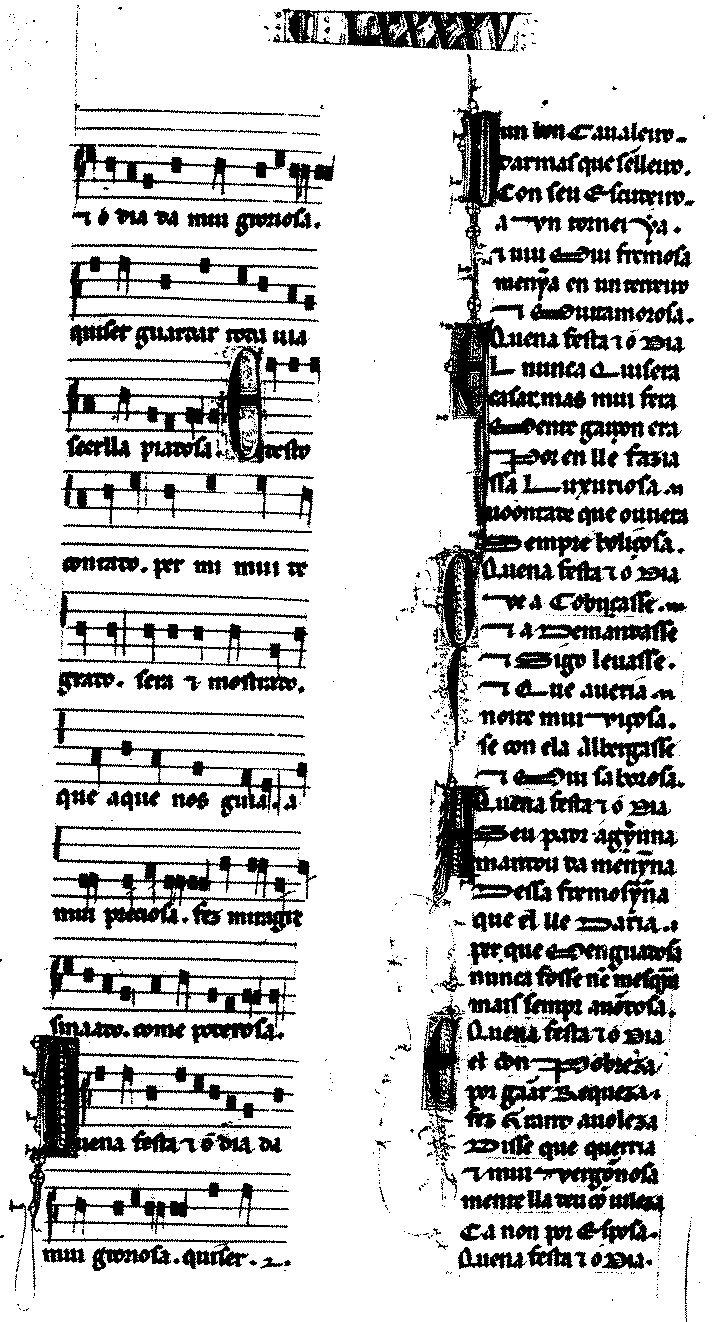 C LXXXXV
⁊ o dia da mui groriosa.
quiser guardar toda uia
seerlla piadosa. E desto
contado. per mi mui de
grado. sera ⁊ mostrado.
que aque nos guia. a
mui preciosa. fez miragre
sinaado. come poderosa.
Quena festa ⁊ o dia da
mui groriosa. quiser.
Un bon Caualeiro.
darmas que selleiro.
Con seu Escudeiro.
a un tornei ya.
⁊ uiu mui fremosa
menỹa en un
⁊ amorosa.
Quena festa ⁊ o Dia
E nunca Quisera
casar. mas mui fera
Mente garçon era
Por en lle fazia
ssa Luxuriosa.
uoontade que ouuera
Sempre boliçosa.
Quena festa ⁊ o Dia
Que a Cobiiçasse.
⁊ a Demandasse
Sigo leuasse.
⁊ Que aueria
noite mui uiçosa.
se con ela Albergasse
⁊ Mui saborosa.
Quena festa ⁊ o Dia
Seu padr agỹnna
mandou da menỹna
Dessa fremosỹna
que el lle Daria.
per que Menguadosa
nunca fosse nē mesqỹna
mais sempr auōdosa.
Quena festa ⁊ o Dia
el con Pobreza
por gāar Requeza.
fez tanto auoleza
Disse que querria
⁊ mui uergōnosa
mente lla deu cō uileza
Ca non por Esposa.
Quena festa ⁊ o Dia.